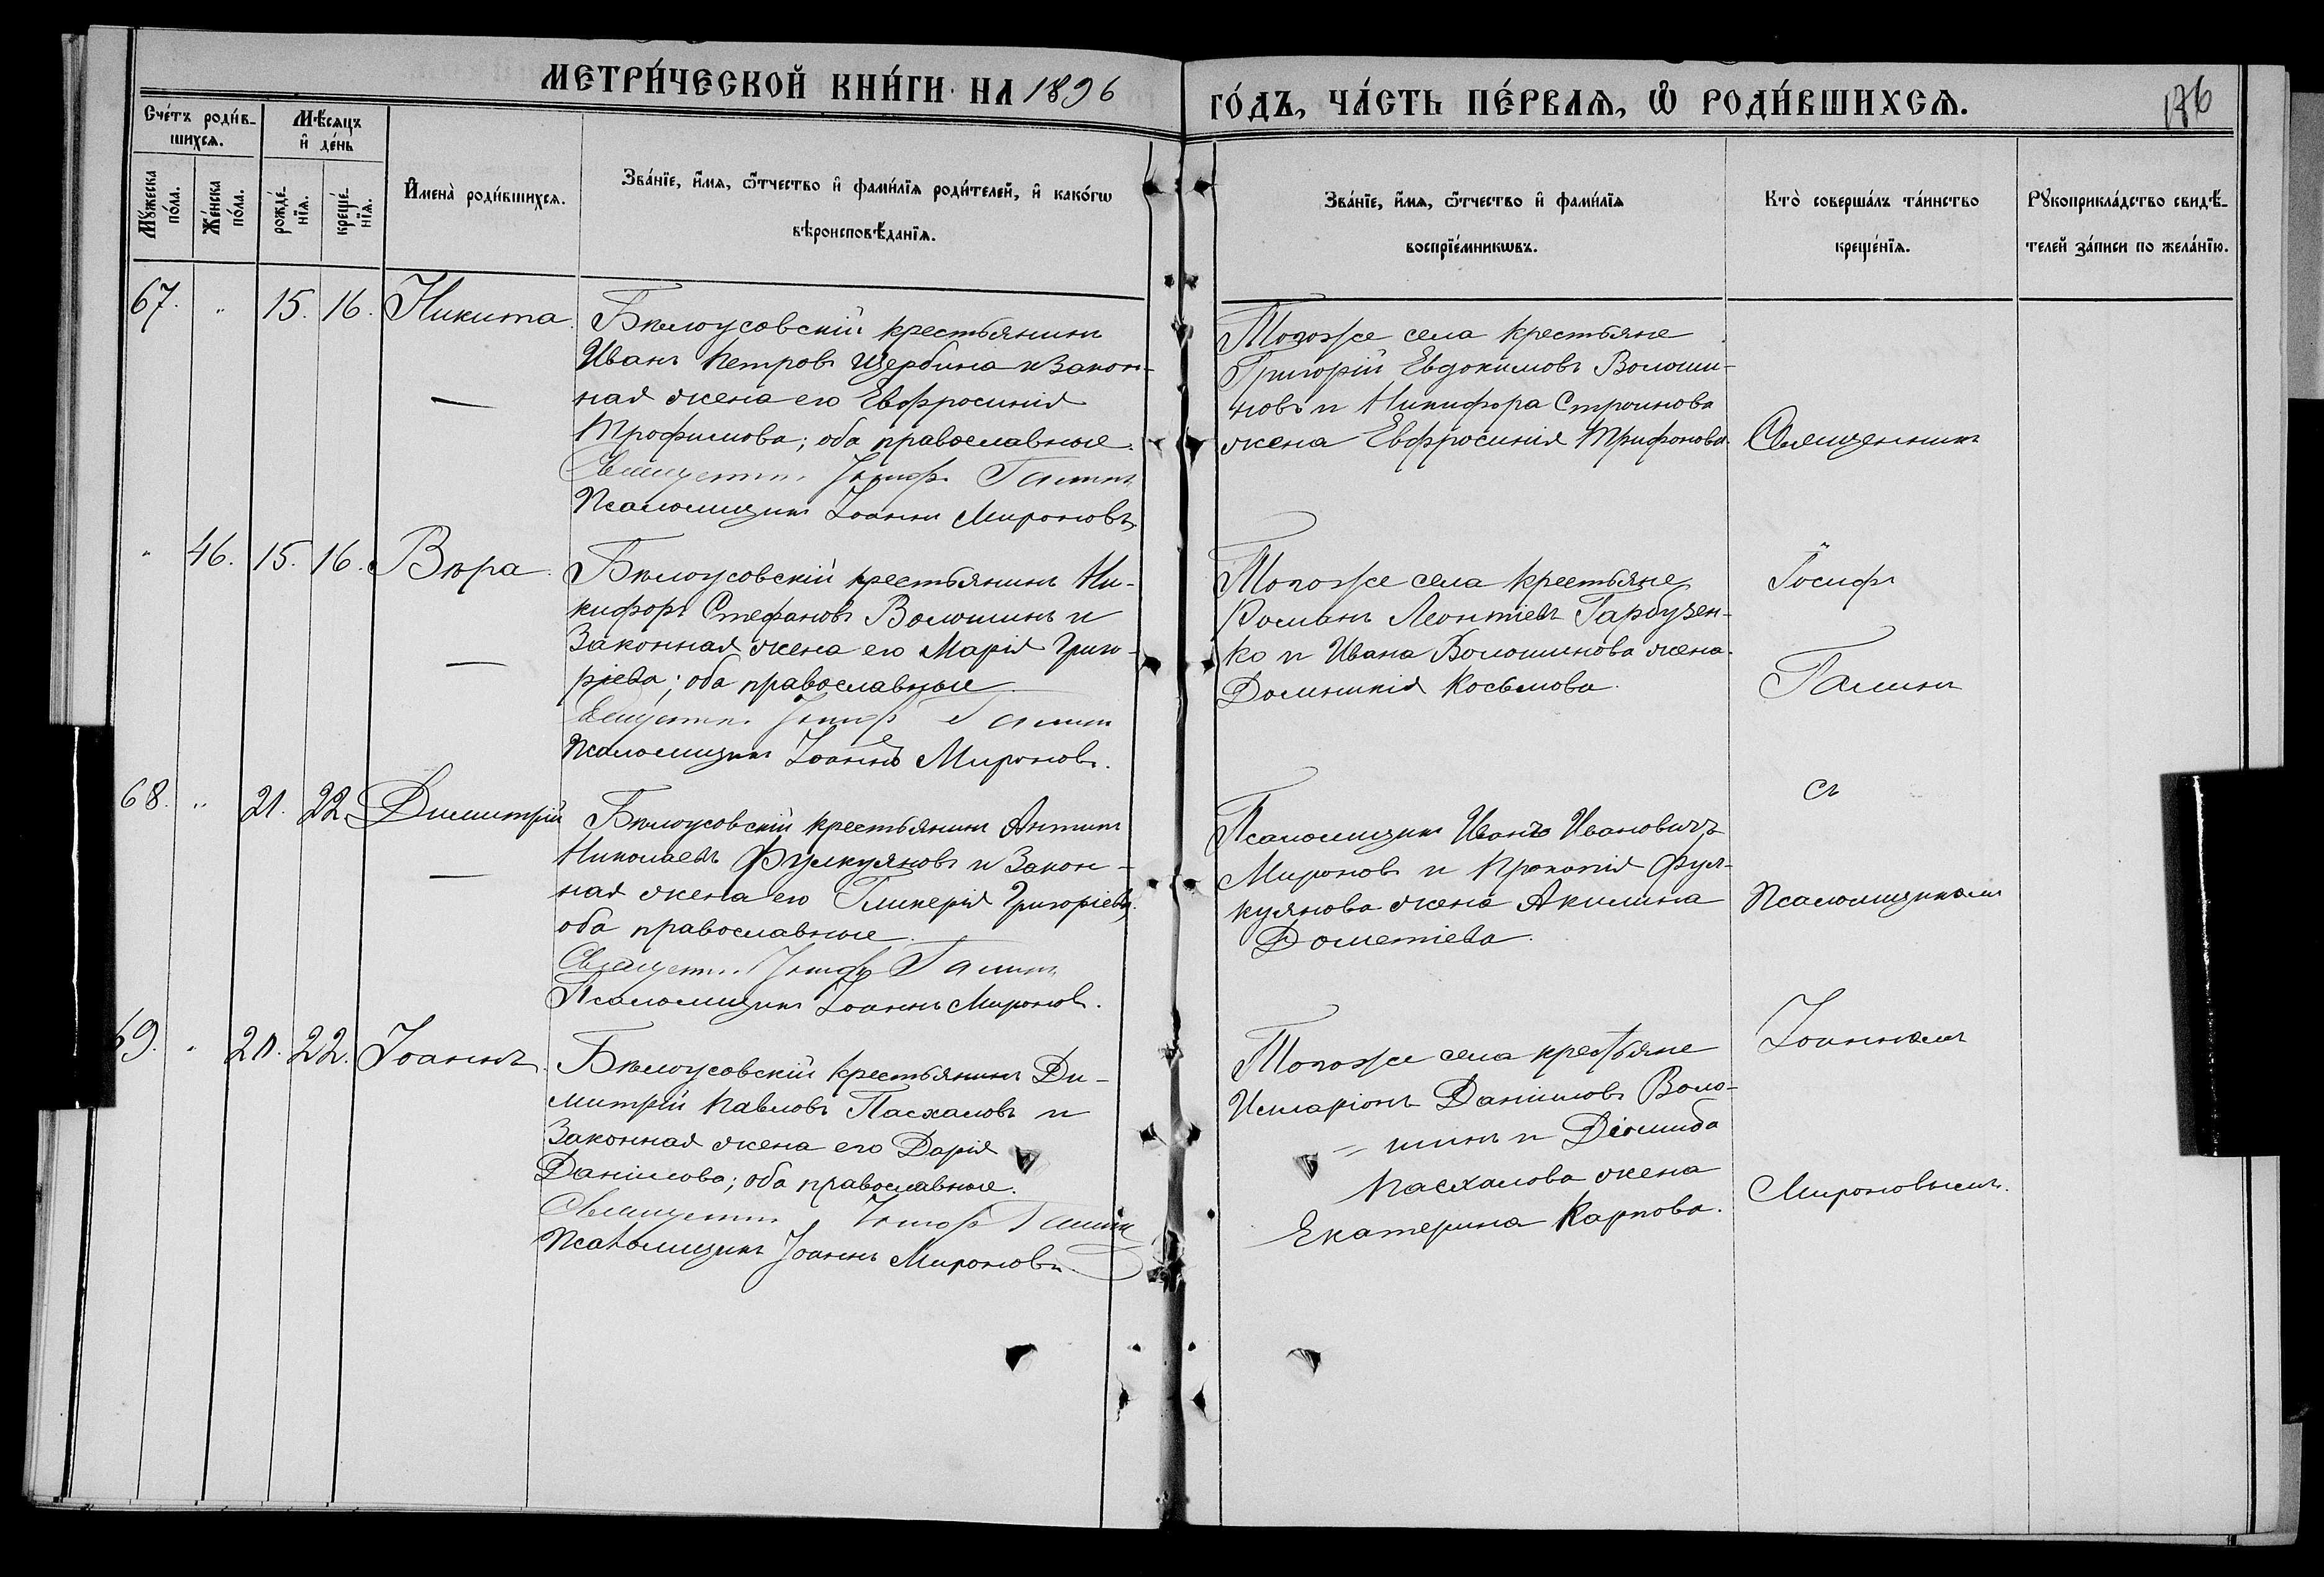 МЕТРИ́ЧЕСКОЙ КНИ́ГИ НА 1896
ГО́ДЪ, ЧА́СТЬ ПЕ́РВАѦ, Ѽ РОДИ́ВШИХСѦ.
176
Сче́тъ роди́в-
шихсѧ.
Мѣ́сѧцъ
и҆ де́нь
Мꙋ́жеска
по́ла.
Же́нска
по́ла.
рожде́-
нїѧ.
креще́-
нїѧ.
И҆мена̀ роди́вшихсѧ.
Зва́нїе, и҆́мѧ, ѻ҆́тчество и҆ фами́лїѧ роди́телей, и҆ како́гѡ
вѣроисповѣ́данїѧ.
Зва́нїе, и҆́мѧ, ѻ҆́тчество и҆ фами́лїѧ
воспрїе́мникѡвъ.
Кто̀ соверша́лъ та́инство
креще́нїѧ.
Рꙋкоприкла́дство свидѣ́-
телей за́писи по жела́нїю.
67. " 15. 16. Никита.
Бѣлоусовскій крестьянинъ
Иванъ Петровъ Щербина и закон-
ная жена его Евфросинія
Трофимова; оба православные.
Священникъ Іосифъ Галинъ
Псаломщикъ Іоаннъ Мироновъ.
Тогоже села крестьяне
Григорій Евдокимовъ Волоши-
новъ и Никифора Строинова
жена Евфросинія Трифонова.
" 46. 15. 16. Вѣра.
Бѣлоусовскій крестьянинъ Ни-
кифоръ Стефановъ Волошинъ и
законная жена его Марія Григо-
ріева; оба православные.
Священникъ Іосифъ Галинъ
Псаломщикъ Іоаннъ Мироновъ.
Тогоже села крестьяне
Романъ Леонтіевъ Гарбузен-
ко и Ивана Волошинова жена
Домникія Косьмова.
68. " 21. 22. Димитрій
Бѣлоусовскій крестьянинъ Антипъ
Николаевъ Фулкуляновъ и закон-
ная жена его Гликерія Григоріева;
оба православные.
Священникъ Іосифъ Галинъ
Псаломщикъ Іоаннъ Мироновъ.
Псаломщикъ Иванъ Ивановичъ
Мироновъ и Прокопія Фул-
кулянова жена Акилина
Дометіева.
69. " 21. 22. Іоаннъ.
Бѣлоусовскій крестьянинъ Ди-
митрій Павловъ Пасхаловъ и
законная жена его Дарія
Даніилова; оба православные.
Священникъ Іосифъ Галинъ
Псаломщикъ Іоаннъ Мироновъ
Тогоже села крестьяне
Иларіонъ Данииловъ Воло-
= шинъ и Діомида
Пасхалова жена
Екатерина Карпова.
Священникъ
Іосифъ
Галинъ
съ
Псаломщикомъ
Іоанномъ
Мироновымъ.